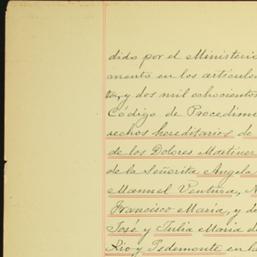 dido por el Ministerio
amento en los artículos
tos y dos mil ochocientos
Código de Procedime
rechos hereditarios de
de los Dolores Martiner
de la Señorita Angela
Manuel Ventura, A
Francisco María, y de
José y Julia María de
Rio y Pedemonte en la